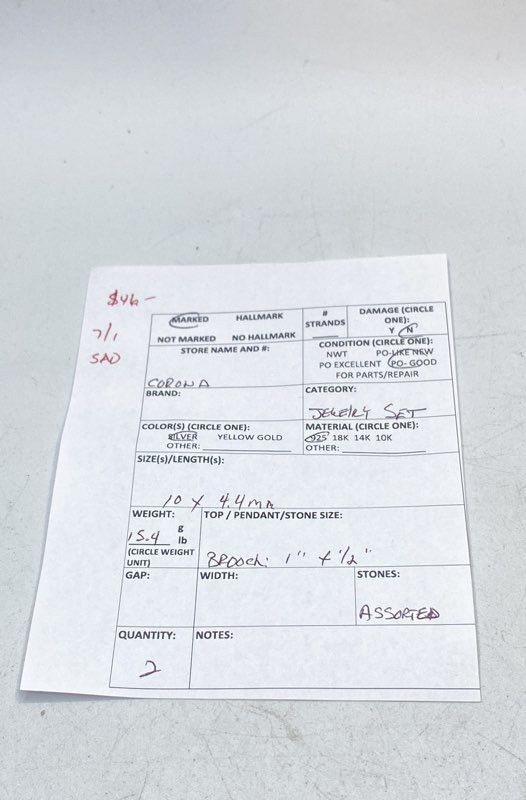 $46-
7/1
SAD
MARKED HALLMARK
NOT MARKED NO HALLMARK
# STRANDS
DAMAGE (CIRCLE ONE):
Y N
STORE NAME AND #:
CORONA
CONDITION (CIRCLE ONE):
NWT PO-LIKE NEW
PO EXCELLENT PO- GOOD
FOR PARTS/REPAIR
BRAND:
CATEGORY:
JEWELRY SET
COLOR(S) (CIRCLE ONE):
SILVER YELLOW GOLD
OTHER:
MATERIAL (CIRCLE ONE):
925 18K 14K 10K
OTHER:
SIZE(s)/LENGTH(s):
10 X 4.4mm
WEIGHT:
15.4 g
lb
(CIRCLE WEIGHT UNIT)
TOP / PENDANT/STONE SIZE:
BROOCH: 1" X 1/2"
GAP:
WIDTH:
STONES:
ASSORTED
QUANTITY:
2
NOTES: